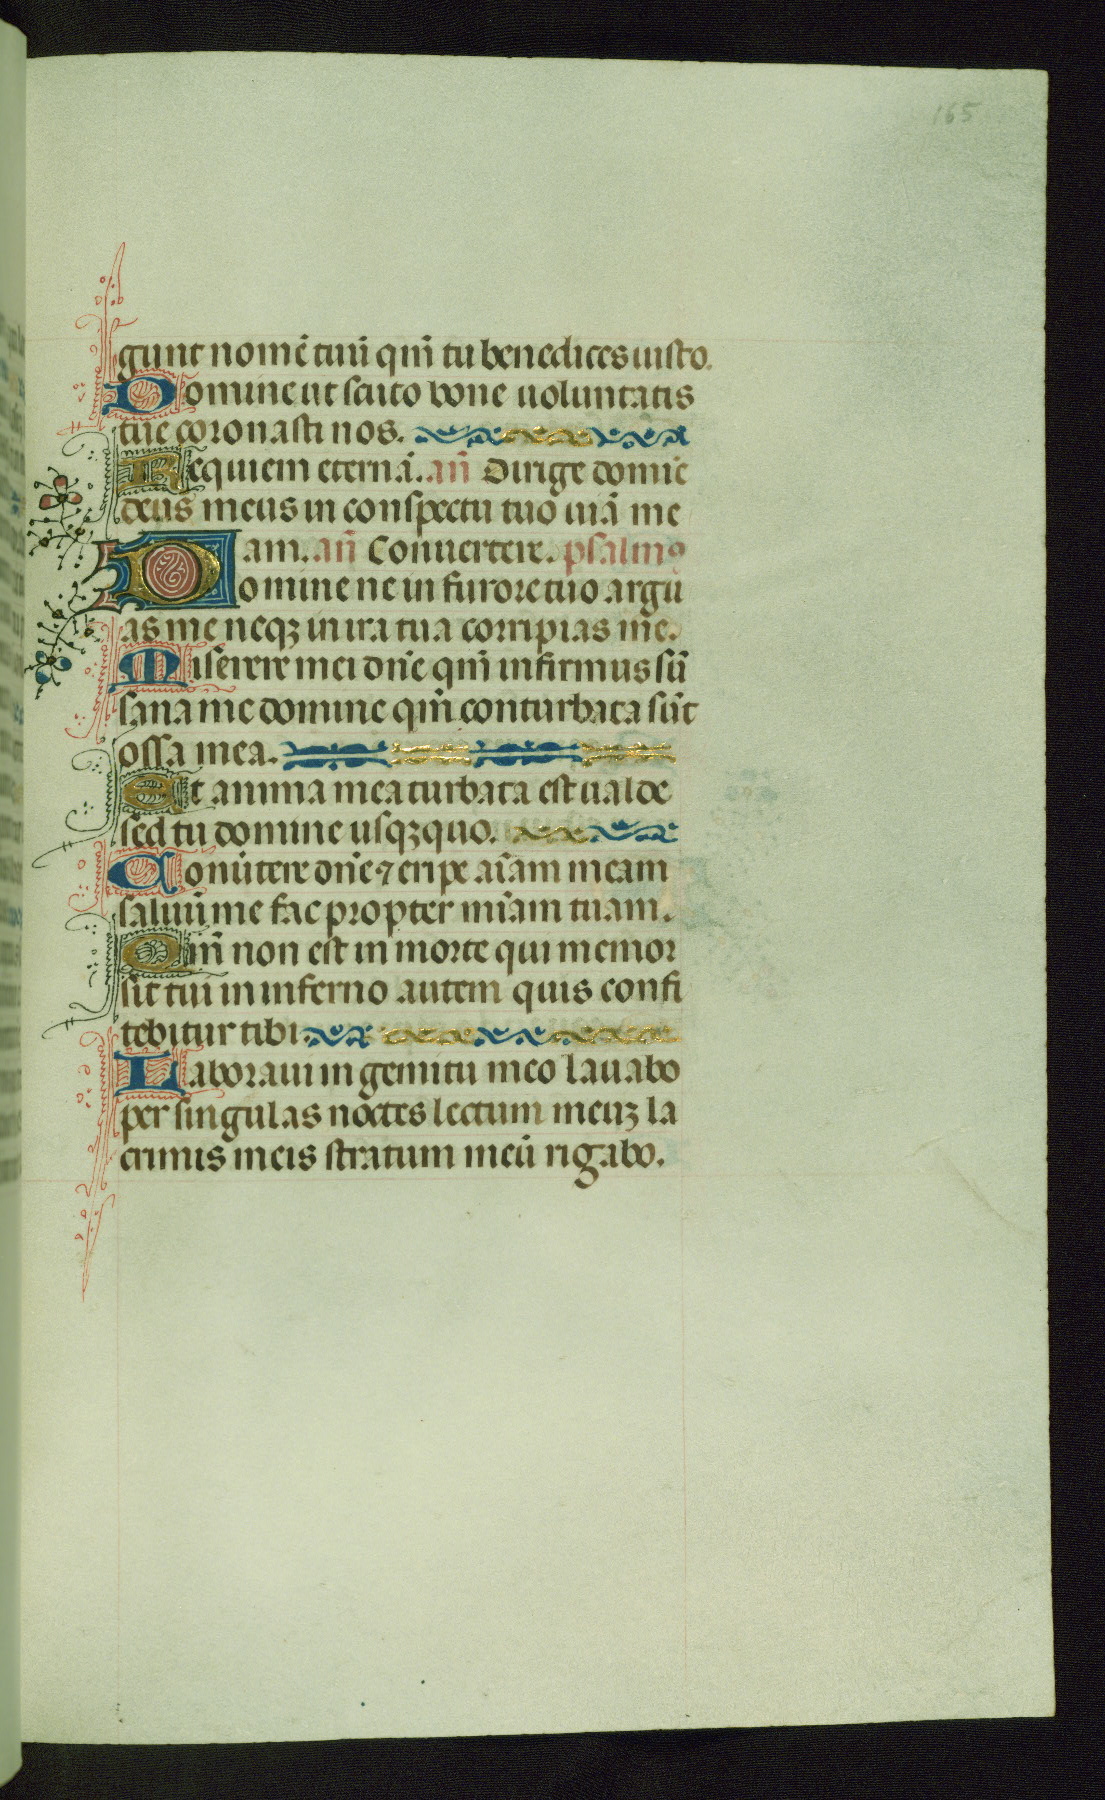 165
gunt nomē tuū qm̄ tu benedices iusto.
Domine ut scuto bone uoluntatis
tue coronasti nos.
Requiem eternā. an̄ Dirige domīe
deus meus in conspectu tuo uiā me
am. an̄ Conuertere. psalmꝰ
Domine ne in furore tuo argu
as me neqꝫ in ira tua corripias me.
Miserere mei dn̄e qm̄ infirmus sū
sana me domine qm̄ conturbata sūt
ossa mea.
Et anima mea turbata est ualde
sed tu domine usqꝫquo.
Conūtere dn̄e ⁊ eripe aīam meam
saluū me fac propter mīam tuam.
Qm̄ non est in morte qui memor
sit tui in inferno autem quis confi
tebitur tibi.
Laboraui in gemitu meo lauabo
per singulas noctes lectum meuꝫ la
crimis meis stratum meū rigabo.